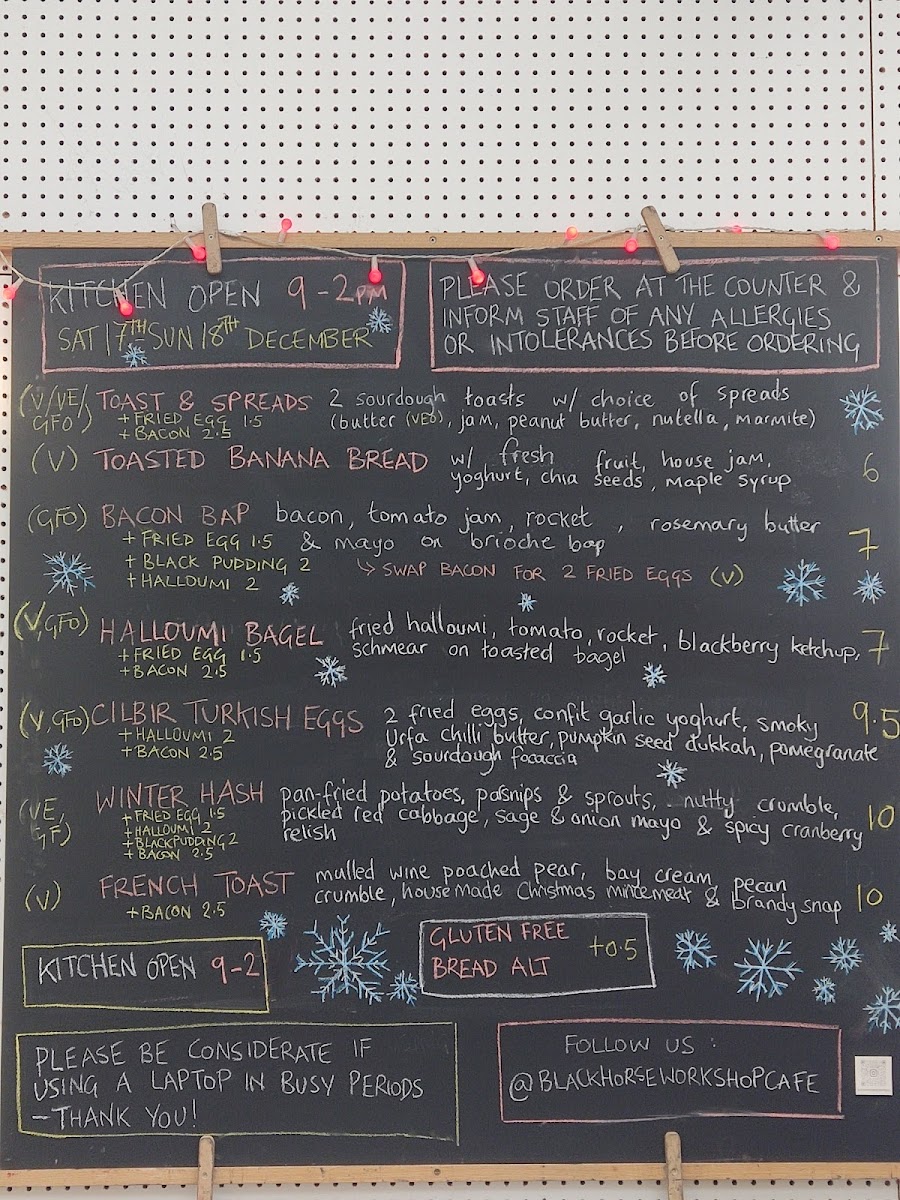 KITCHEN OPEN 9-2PM
SAT 17TH SUN 18TH DECEMBER
PLEASE ORDER AT THE COUNTER &
INFORM STAFF OF ANY ALLERGIES
OR INTOLERANCES BEFORE ORDERING
(V/VE/GFO) TOAST & SPREADS 2 sourdough toasts w/ choice of spreads
+ FRIED EGG 1.5 (butter (VEO), jam, peanut butter, nutella, marmite)
+ BACON 2.5
(V) TOASTED BANANA BREAD w/ fresh fruit, house jam, 6
yoghurt, chia seeds, maple syrup
(GFO) BACON BAP bacon, tomato jam, rocket, rosemary butter 7
+ FRIED EGG 1.5 & mayo on brioche bap
+ BLACK PUDDING 2 ↳ SWAP BACON FOR 2 FRIED EGGS (V)
+ HALLOUMI 2
(V, GFO) HALLOUMI BAGEL fried halloumi, tomato, rocket, blackberry ketchup, 7
+ FRIED EGG 1.5 schmear on toasted bagel
+ BACON 2.5
(V, GFO) CILBIR TURKISH EGGS 2 fried eggs, confit garlic yoghurt, smoky 9.5
+ HALLOUMI 2 Urfa chilli butter, pumpkin seed dukkah, pomegranate
+ BACON 2.5 & sourdough focaccia
(VE, GF) WINTER HASH pan-fried potatoes, parsnips & sprouts, nutty crumble, 10
+ FRIED EGG 1.5 pickled red cabbage, sage & onion mayo & spicy cranberry
+ HALLOUMI 2 relish
+ BLACKPUDDING 2
+ BACON 2.5
(V) FRENCH TOAST mulled wine poached pear, bay cream, pecan 10
+ BACON 2.5 crumble, house made Christmas mincemeat & brandy snap
KITCHEN OPEN 9-2
GLUTEN FREE
BREAD ALT +0.5
PLEASE BE CONSIDERATE IF
USING A LAPTOP IN BUSY PERIODS
- THANK YOU!
FOLLOW US :
@BLACKHORSEWORKSHOPCAFE